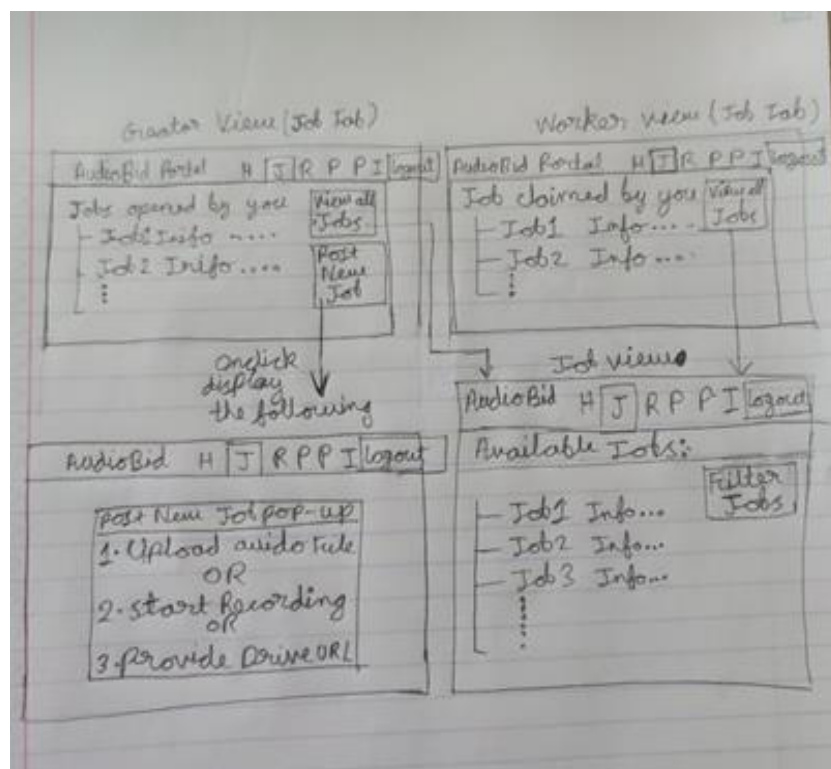 Creator View (Job Tab)
AudioBid Portal H J R P P I Logout
Jobs opened by you
View all
Jobs
Job1 Info ....
Job 2 Info ....
Post
New
Job
Onclick
display
the following
AudioBid H J R P P I Logout
Post New Job pop-up
1. Upload audio File
OR
2. Start Recording
OR
3. Provide Drive URL
Worker view (Job Tab)
AudioBid Portal H J R P P I Logout
Job claimed by you
View all
Jobs
Job1 Info....
Job2 Info....
Job view
AudioBid H J R P P I Logout
Available Jobs:
Filter
Jobs
Job1 Info...
Job2 Info...
Job3 Info...